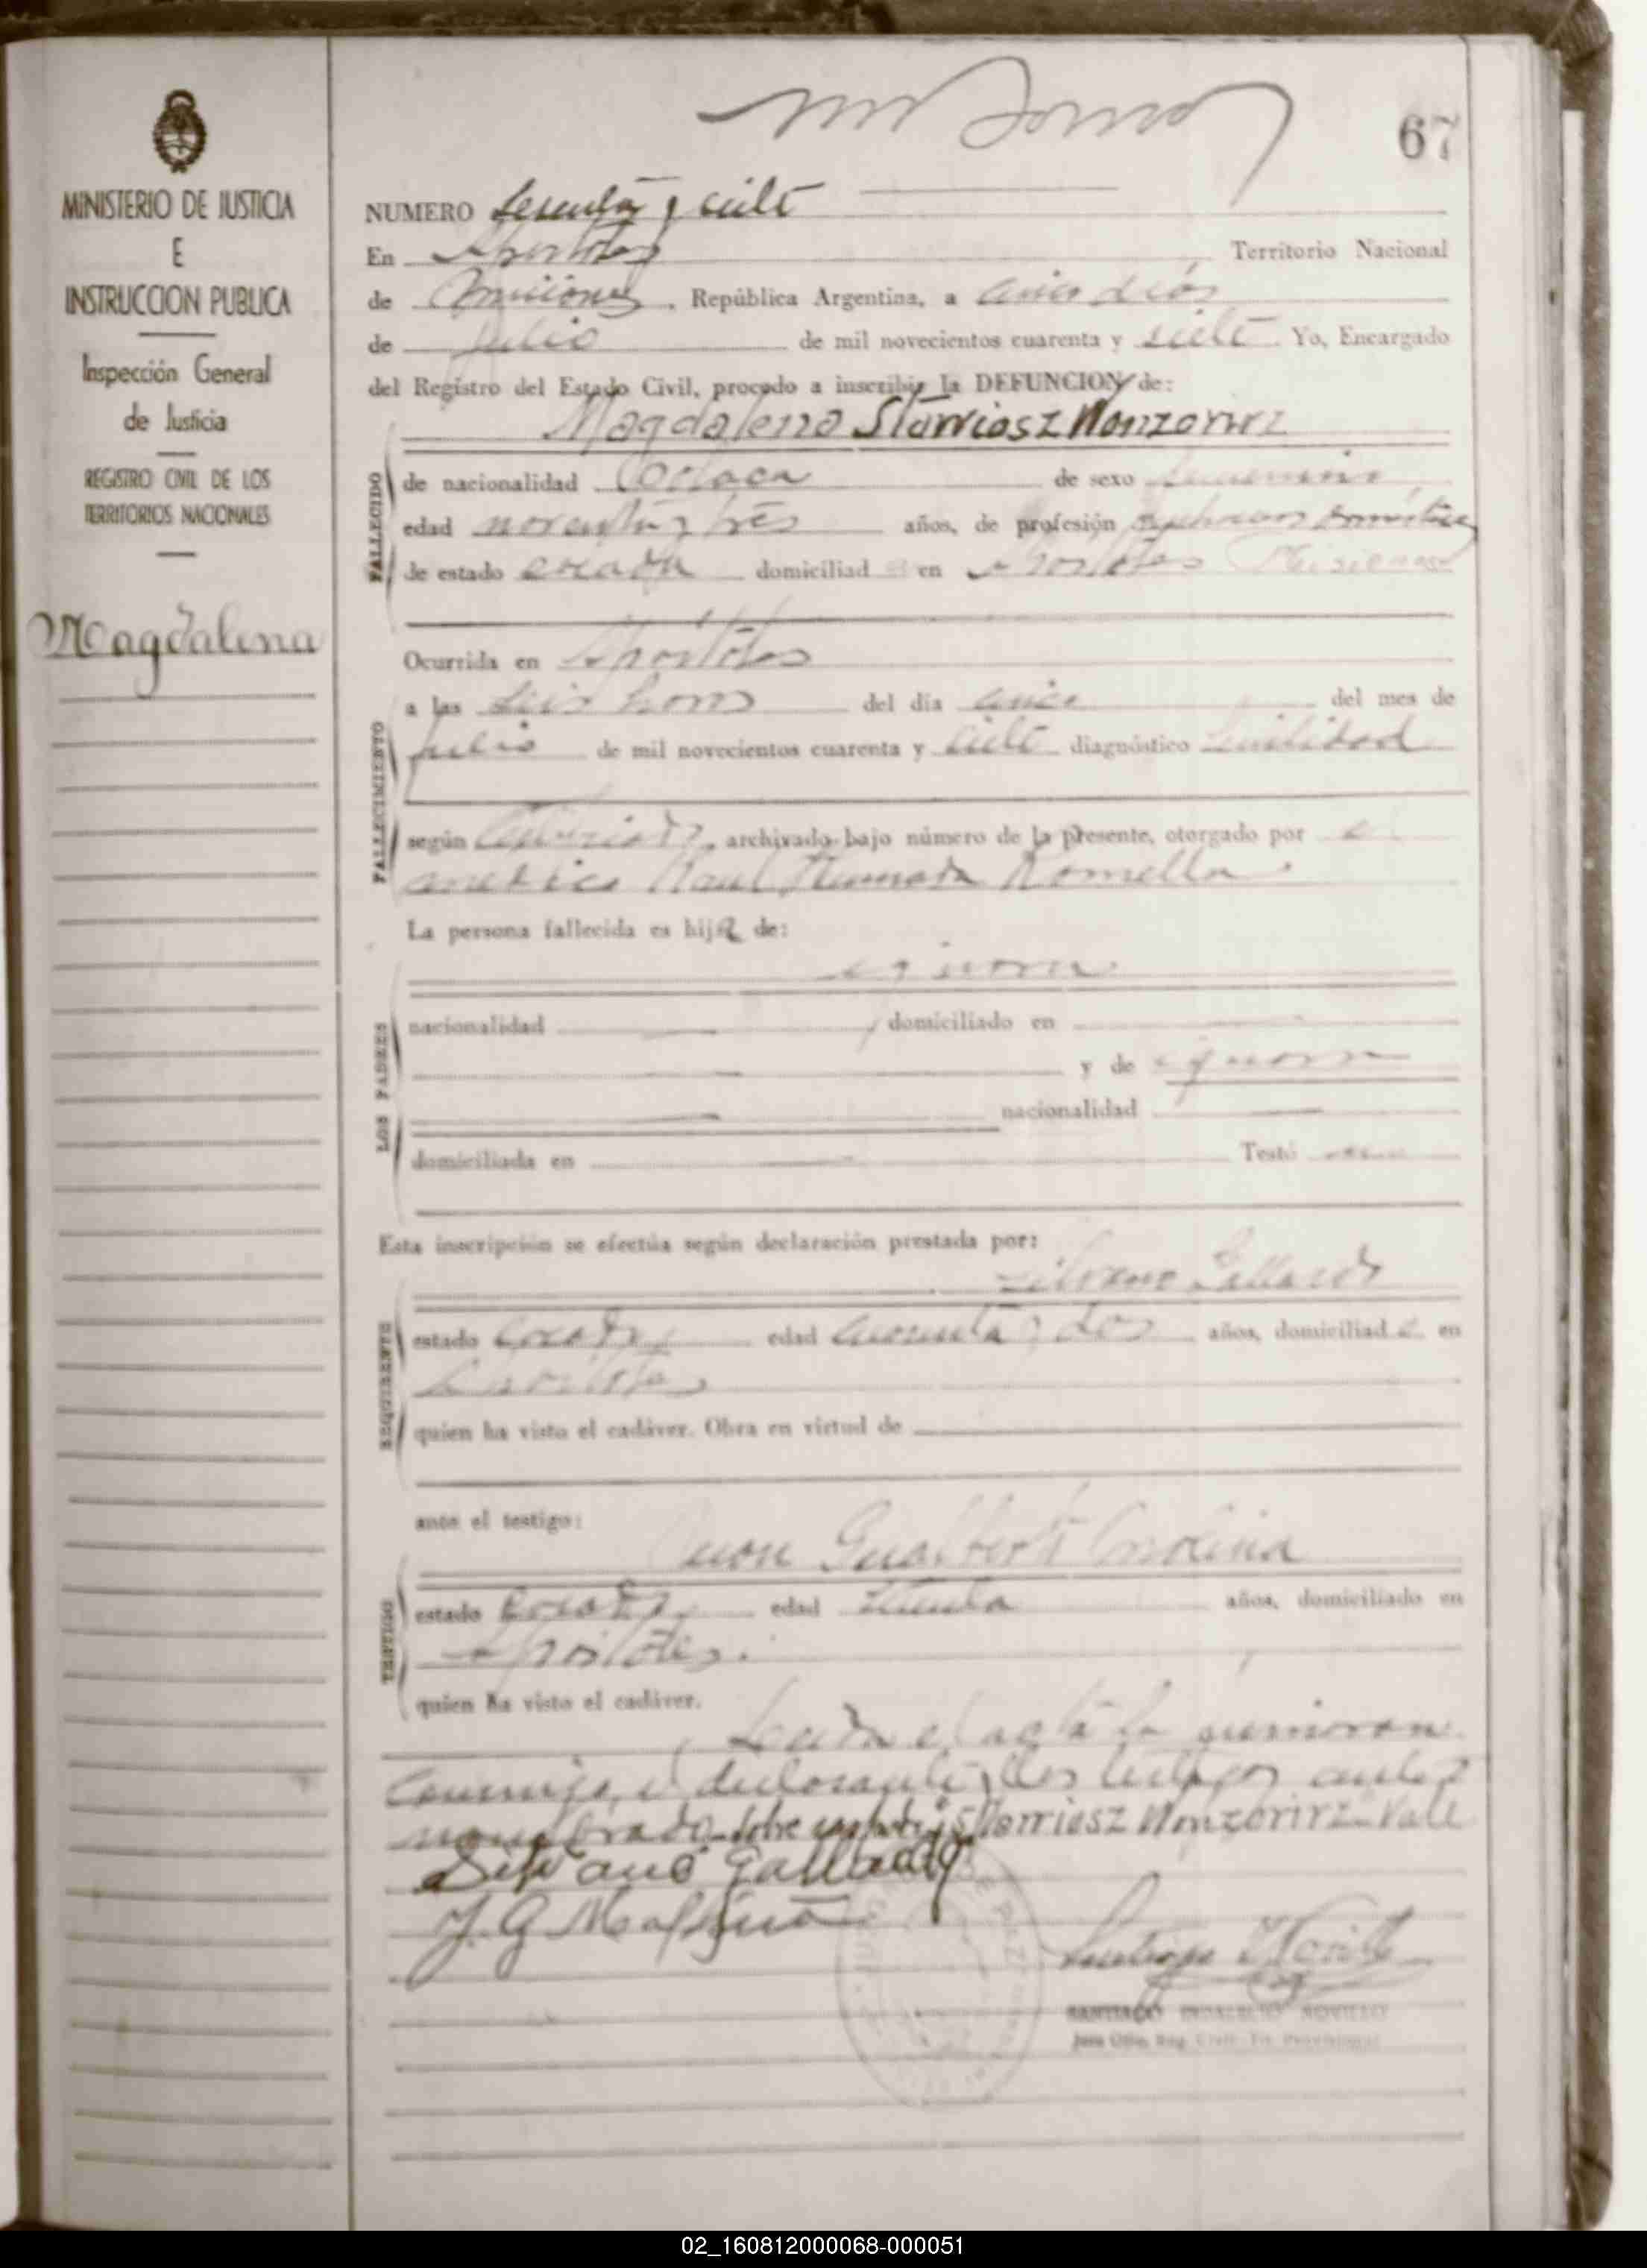 67
MINISTERIO DE JUSTICIA
E
INSTRUCCION PUBLICA
Inspección General
de Justicia
REGISTRO CIVIL DE LOS
TERRITORIOS NACIONALES
Magdalena
NUMERO Sesenta y siete
En Apóstoles Territorio Nacional
de Misiones, República Argentina, a cinco días
de Julio de mil novecientos cuarenta y siete Yo, Encargado
del Registro del Estado Civil, procedo a inscribir la DEFUNCION de:
Magdalena
FALLECIDO
de nacionalidad Polaca de sexo femenino
edad noventa y tres años, de profesión
de estado casada domiciliad en Apóstoles Misiones
FALLECIMIENTO
Ocurrida en Apóstoles
a las seis horas del día cinco del mes de
Julio de mil novecientos cuarenta y siete diagnóstico senilidad
según certificado, archivado bajo número de la presente, otorgado por el
médico Raul Romella
La persona fallecida es hija de:
LOS PADRES
ignora
nacionalidad domiciliado en
y de ignora
nacionalidad
domiciliada en Testó
Esta inscripción se efectúa según declaración prestada por:
REQUIRENTE
Silvano Gallardo
estado casado edad cuarenta y dos años, domiciliad o en
Apóstoles
quien ha visto el cadáver. Obra en virtud de
ante el testigo:
TESTIGO
Juan Gualberto Molina
estado casado edad treinta años, domiciliado en
Apóstoles.
quien ha visto el cadáver.
Leída el acta la firmaron
conmigo, el declarante y los testigos antes
nombrado Vale
Silvano Gallardo
J. G. Molina
SANTIAGO INDALECIO NOVILLO
02_160812000068-000051